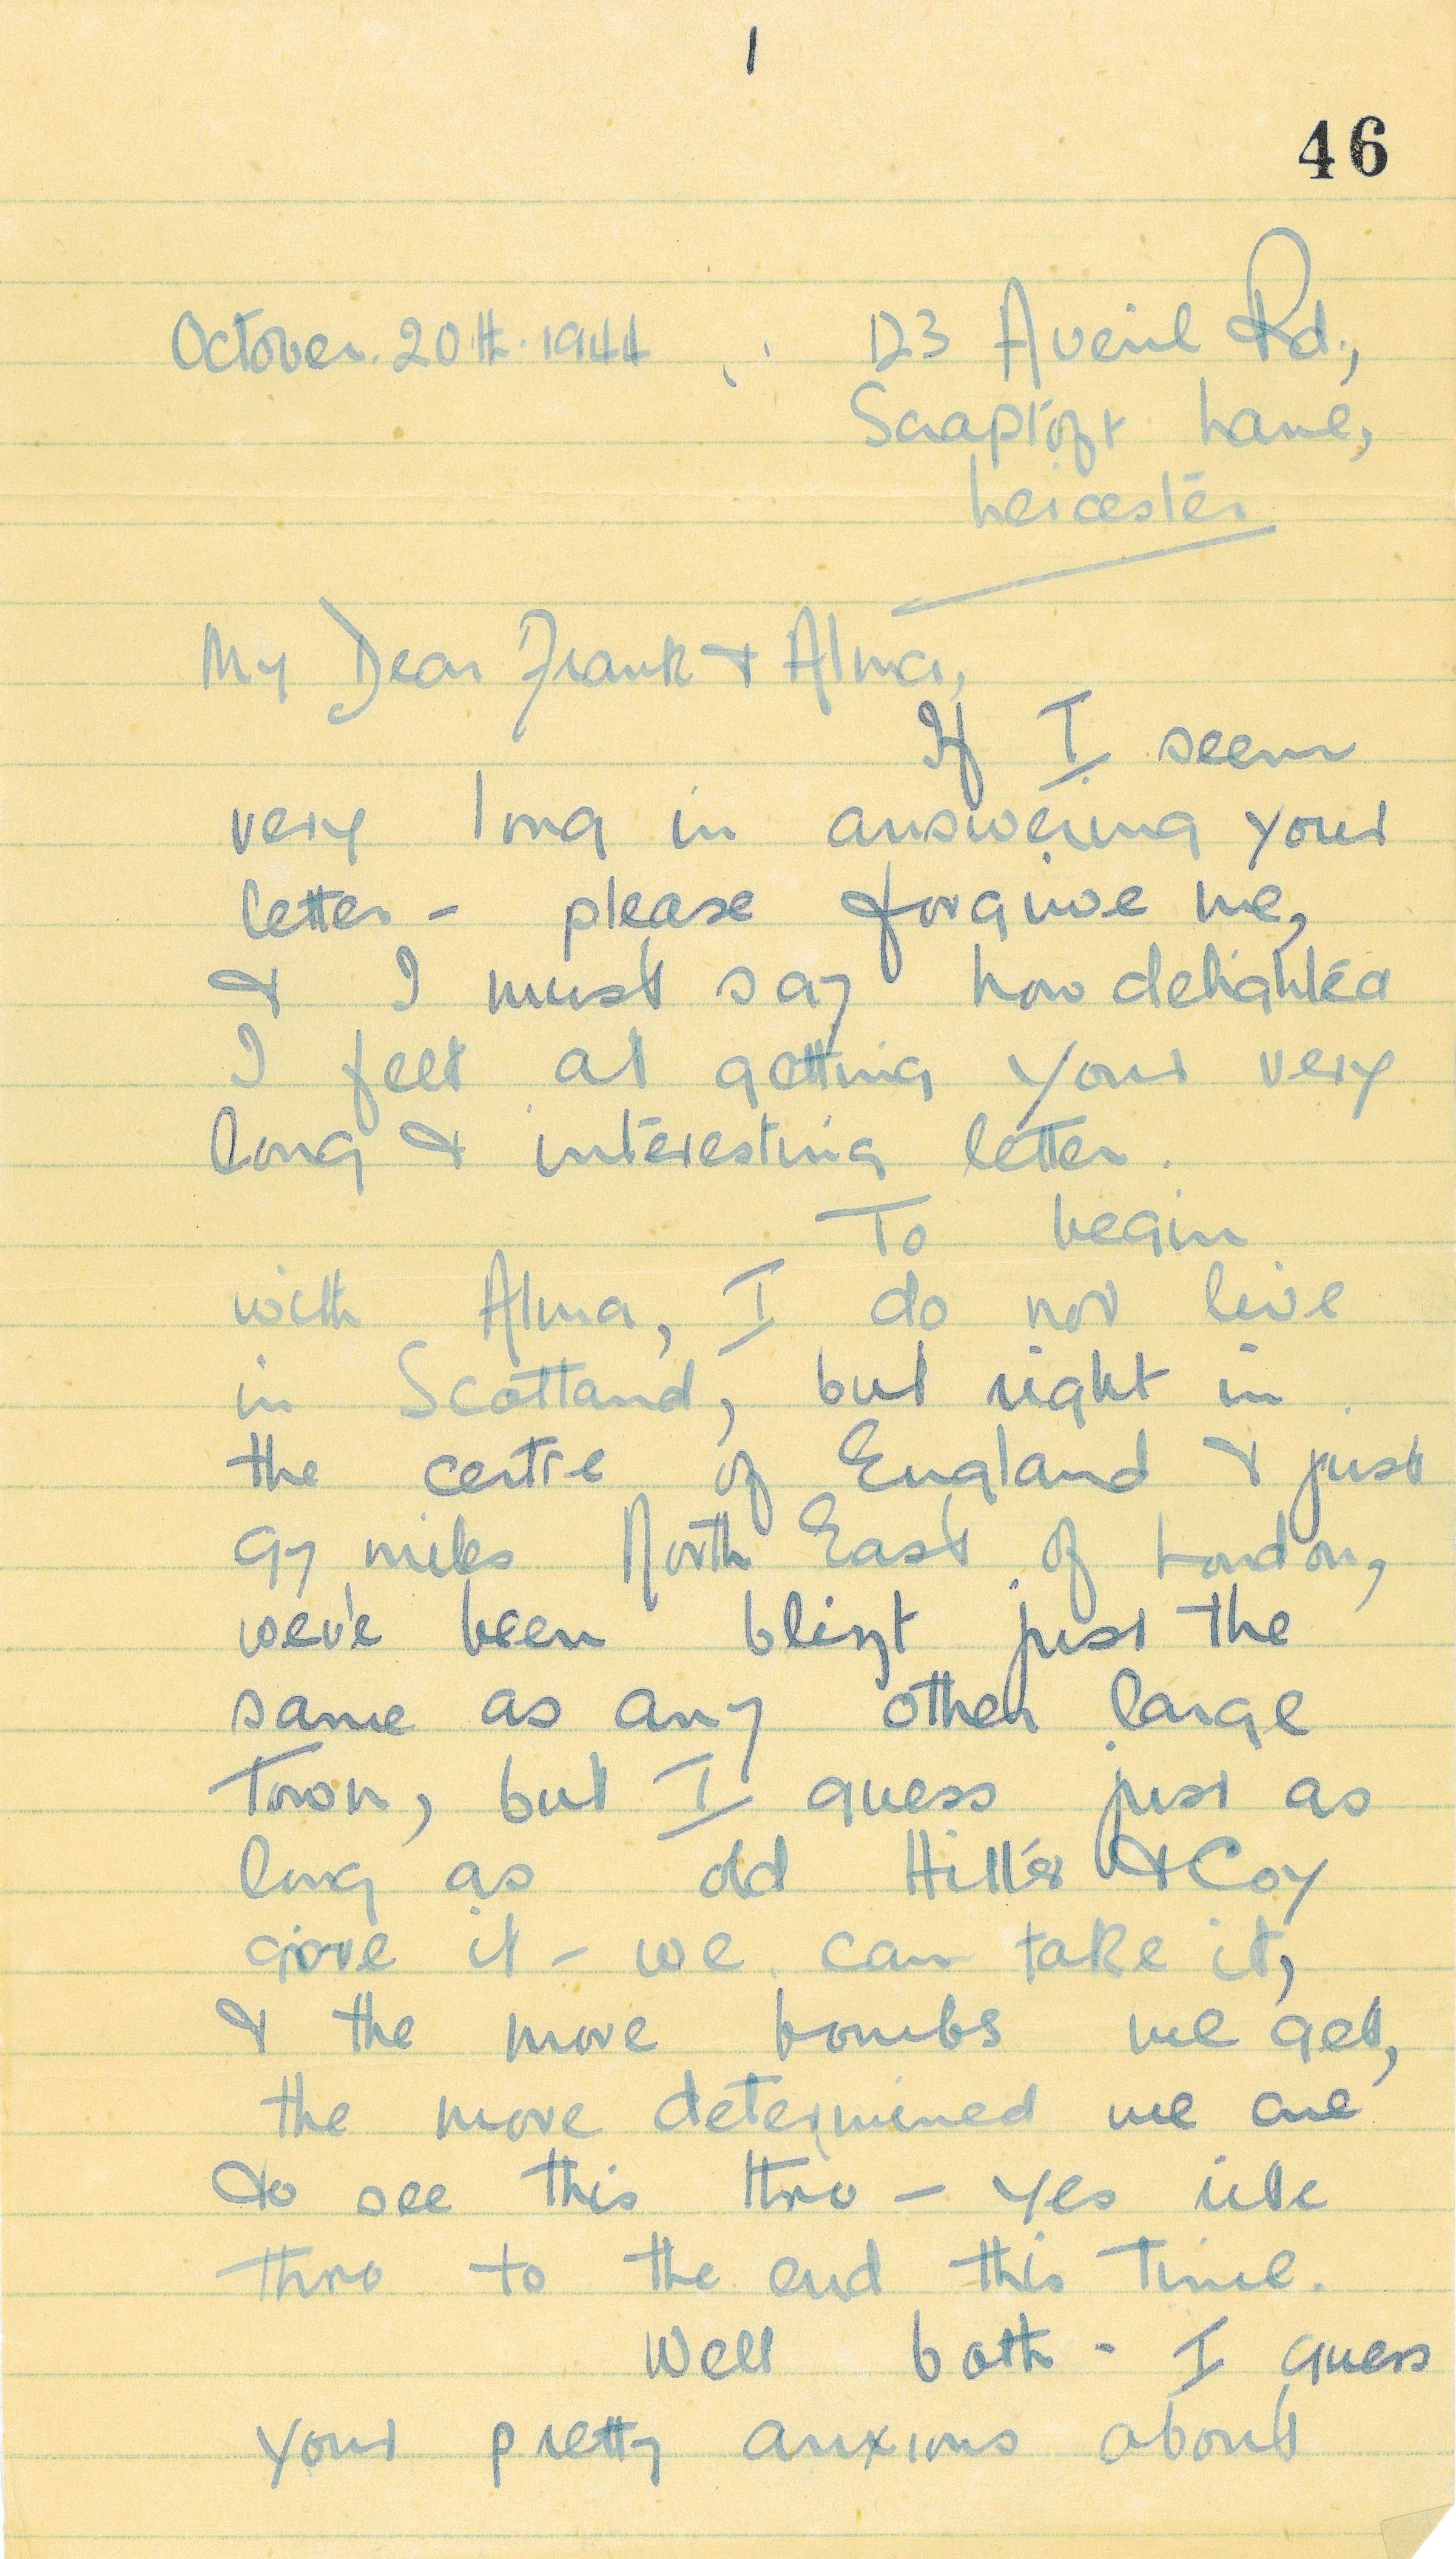 1
46
October. 20th. 1944
123 Averil Rd.,
Scraptoft Lane,
Leicester
My Dear Frank & Alma,
If I seem
very long in answering your
letter - please forgive me,
& I must say how delighted
I felt at getting your very
long & interesting letter.
To begin
with Alma, I do not live
in Scotland, but right in
the centre of England & just
97 miles North East of London,
we've been blizt just the
same as any other large
Town, but I guess just as
long as old Hitler & Coy
give it - we can take it,
& the more bombs we get,
the more determined we are
to see this thro - yes
thro to the end this time.
Well both - I guess
your pretty anxious about